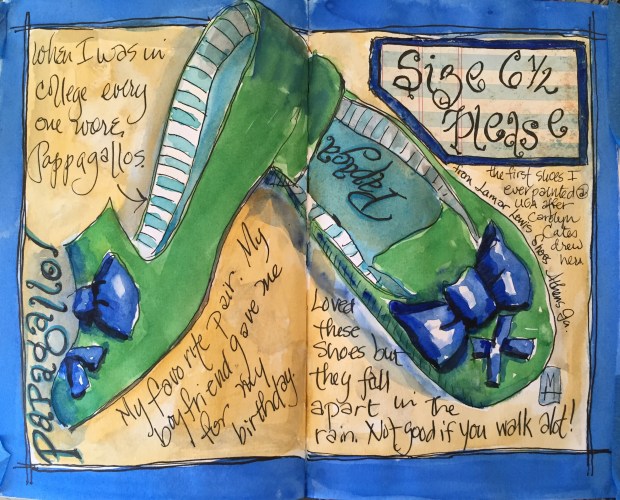 When I was in
college every
one wore
Pappagallos.
Size 6 1/2
Please
the first shoes I
ever painted @
UGA after
Carolyn
Cates
drew
hers
from Lamar Lewis Shoes Athens Ga.
Papag
Papagallo!
My favorite pair. My
boyfriend gave me
for my
birthday.
Loved
these
shoes but
they fall
apart in the
rain. Not good if you walk alot!
M